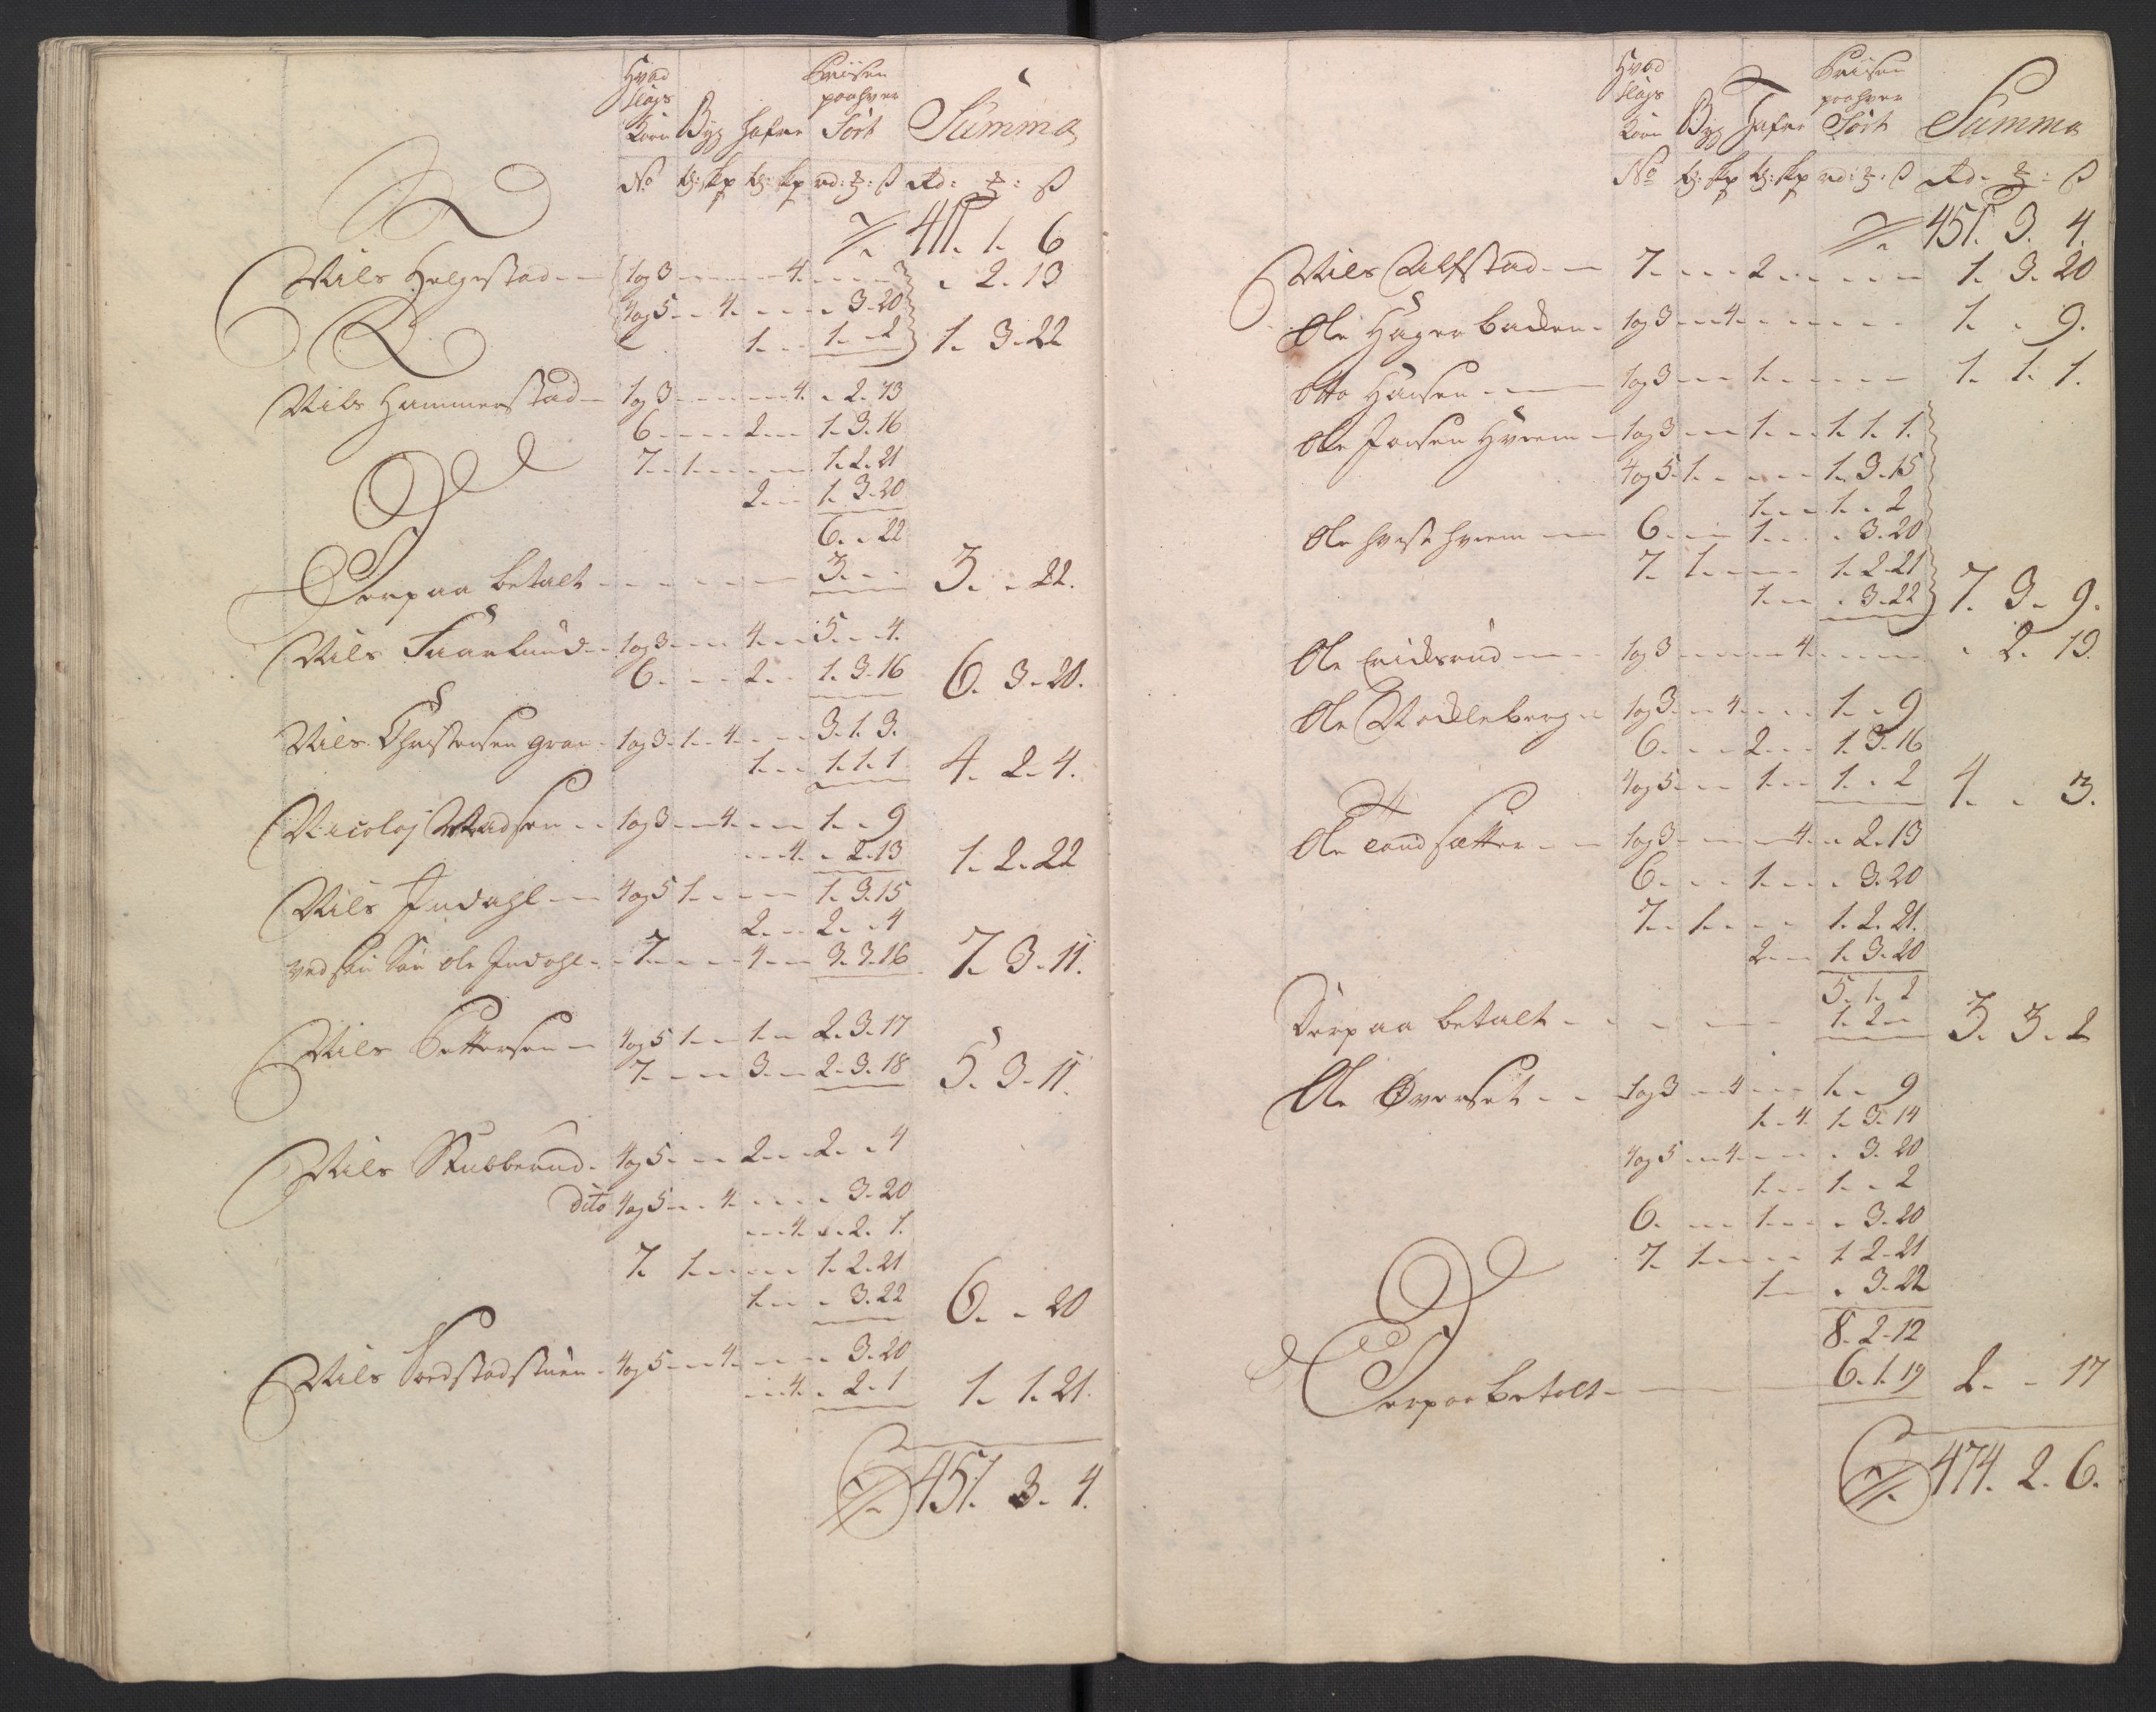 Hvad
slags
Korn Byg Hafre
Priisen
paa hver
Sort Summa
No tr: skp tr: skp rd: ß rd: ß
411. 1. 6
Nils Helgestad 1 og 3 4. . 2. 13
4 og 5 4. . 3. 20
1. 1. . 2 1. 3. 22
Nils Hammerstad 1 og 3 4. . 2. 13
6. 2. 1. 3. 16
7. 1. 1. 2. 21
2. 1. 3. 20
6. . 22
Derpaa betalt 3. . . 3. . 22.
Nils Faarlund 1 og 3 4. 5. . 4.
6. 2. 1. 3. 16 6. 3. 20.
Nils Christensen Gran 1 og 3. 1. 4. 3. 1. 3.
1. 1. 1. 1 4. 2. 4.
Nicolaj Madsen 1 og 3 4. 1. . 9
4. . 2. 13 1. 2. 22
Nils Indahl 4 og 5 1. 1. 3. 15
2. 2. . 4
ved sin Søn Ole Indahl 7. 4. 3. 3. 16 7. 3. 11.
Nils Pettersen 4 og 5 1. 1. 2. 3. 17
7. 3. 2. 3. 18 5. 3. 11.
Nils Stubberud 4 og 5 2. 2. . 4
dito 4 og 5 4. . 3. 20
4. . 2. 1.
7. 1. 1. 2. 21
1. . 3. 22 6. . 20
Nils 4 og 5 4. . 3. 20
4. . 2. 1 1. 1. 21.
451. 3. 4.
Hvad
slags
Korn Byg Hafre
Priisen
paa hver
Sort Summa
No tr: skp tr: skp rd: ß Rd. ß
451. 3. 4.
Nils Alfstad 7. 2. 1. 3. 20
Ole Hagerbacken 1 og 3 4. 1. . 9.
Otto Hansen 1 og 3 1. 1. 1. 1.
Ole Jonsen Hveem 1 og 3 1. 1. 1. 1.
4 og 5. 1. 1. 3. 15
1. 1. . 2
Ole hveem 6. 1. . 3. 20
7. 1. 1. 2. 21
1. . 3. 22 7. 3. 9.
Ole Ericksrud 1 og 3 4. . 2. 13.
Ole Nockleberg 1 og 3. 4. 1. . 9
6. 2. 1. 3. 16
4 og 5 1. 1. . 2 4. . 3.
Ole sætter 1 og 3 4. . 2. 13
6. 1. . 3. 20
7. 1. 1. 2. 21.
2. 1. 3. 20
5. 1. 2
Derpaa betalt 1. 2. 3. 3. 2
Ole Øverset 1 og 3 4 1. . 9
1. 4. 1. 3. 14
4 og 5 4. . 3. 20
1. 1. . 2
6. 1. . 3. 20
7. 1. 1. 2. 21
1 . 3. 22
8. 2. 12
Derpaa betalt 6. 1. 19 2. . 17
474. 2. 6.